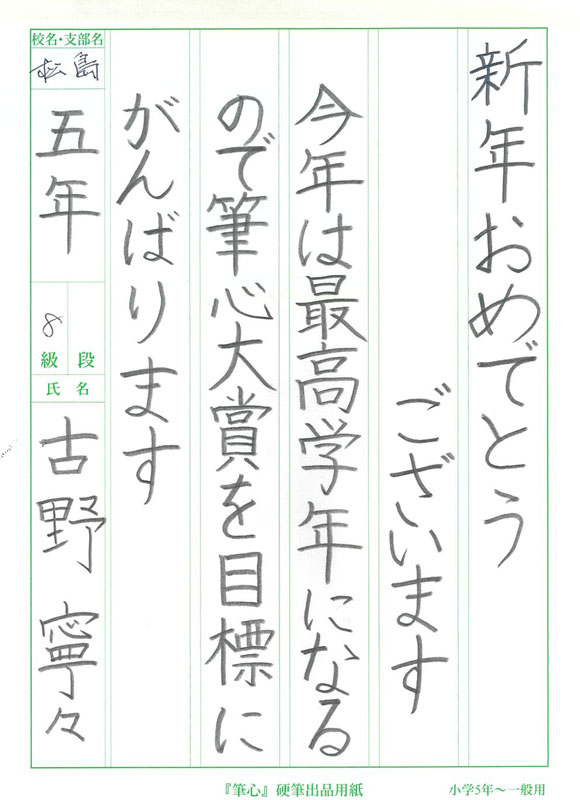 新年おめでとう
ございます
今年は最高学年になる
ので筆心大賞を目標に
がんばります
校名・支部名
松島
五年
8
級 段
氏 名
古野 寧々
『筆心』硬筆出品用紙
小学5年〜一般用